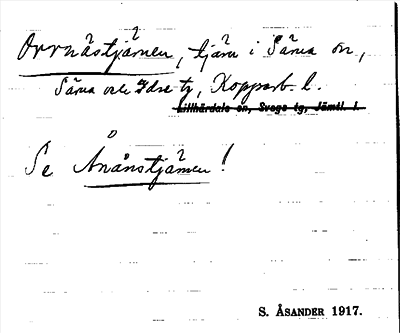 Orrnåstjärnen, tjärn i Särna sn,
Särna och Idre tg, Kopparb. l.
Lillhärdals sn, Svegs tg, Jämtl. l.
Se Ånånstjärnen!
S. ÅSANDER 1917.